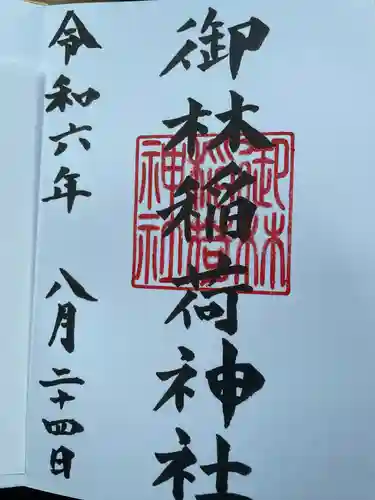 御林稲荷神社
令和六年 八月二十四日
御林
稲荷
神社